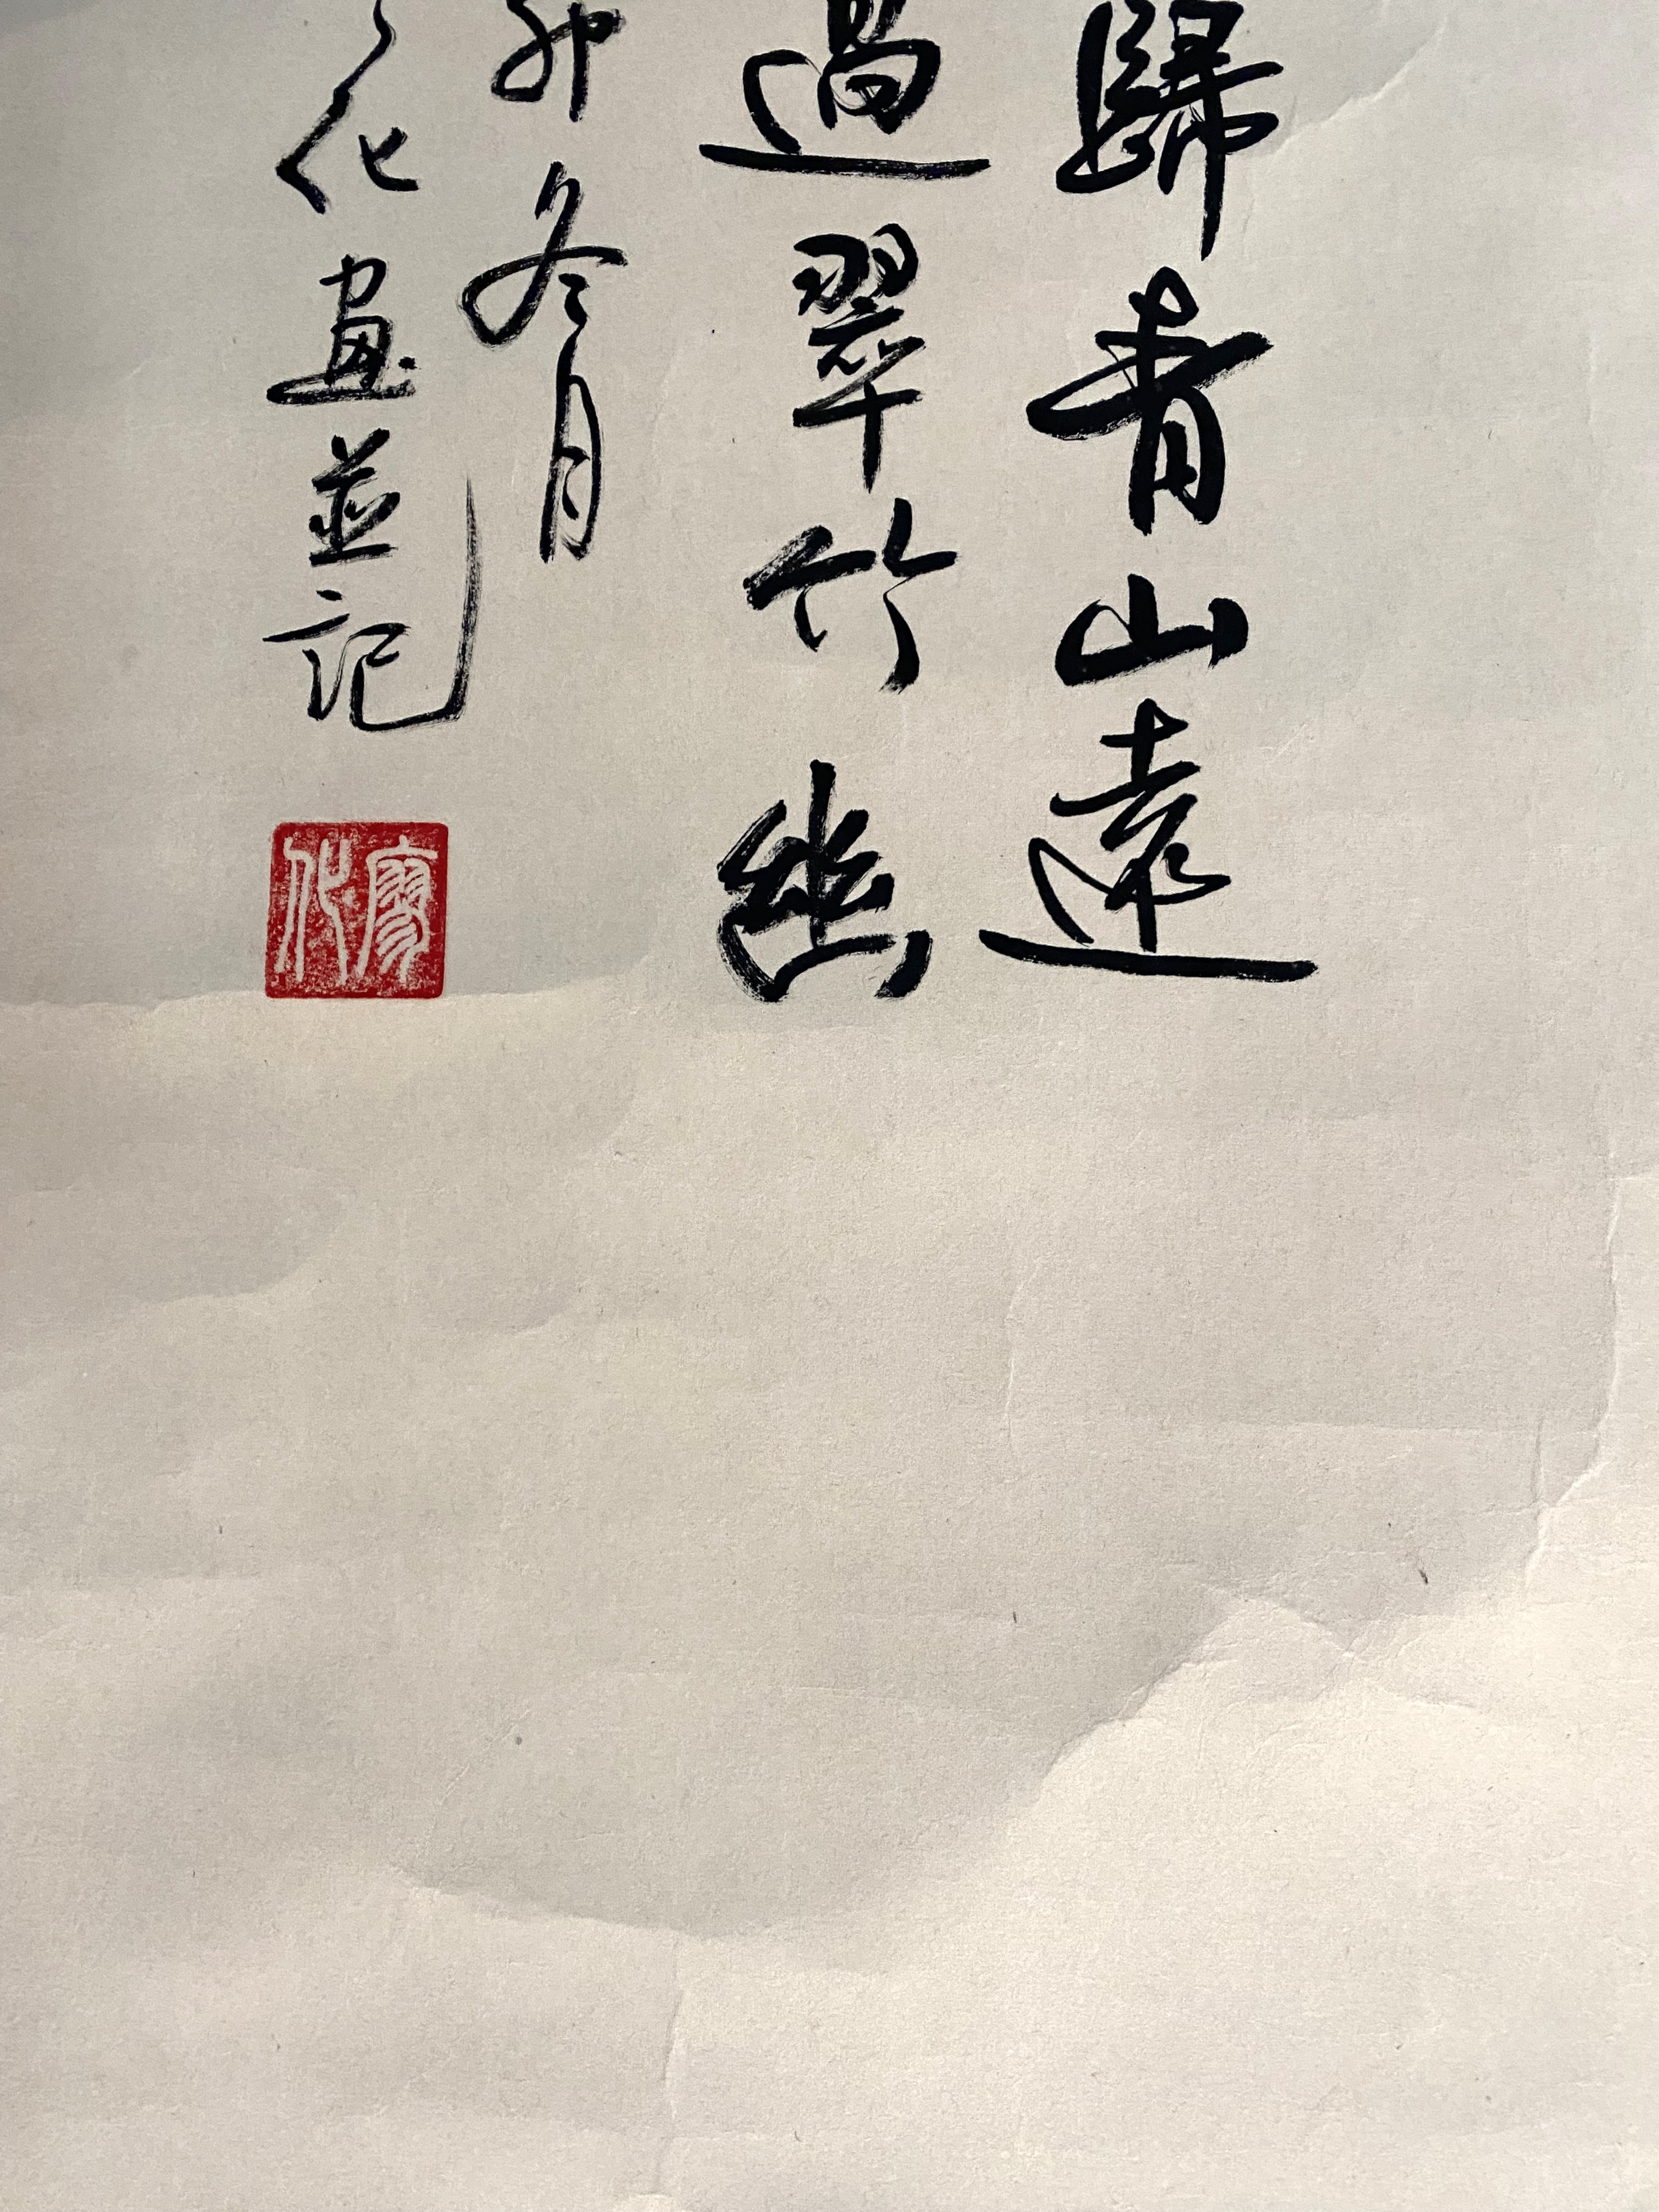 歸青山遠
過翠竹幽
卯冬月
化畫並記
廖化